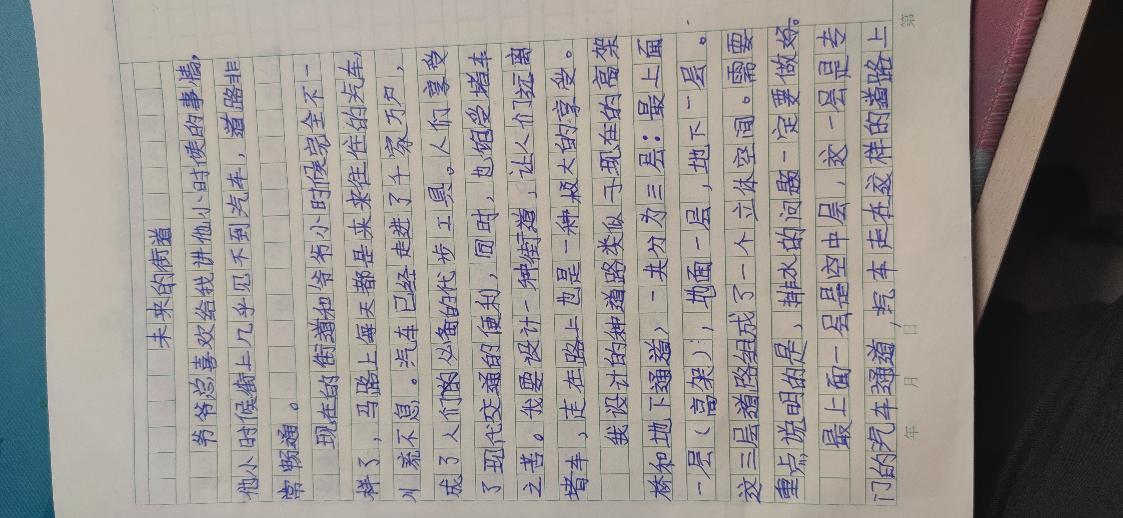 未来的街道
爷爷总喜欢给我讲他小时候的事情,
他小时候街上几乎见不到汽车，道路非
常畅通。
现在的街道和爷爷小时候完全不一
样了，马路上每天都是来来往往的汽车,
川流不息。汽车已经走进了千家万户，
成了人们的必备的代步工具。人们享受
了现代交通的便利，同时，也饱受堵车
之苦。我要设计一种街道，让人们远离
堵车，走在路上也是一种极大的享受。
我设计的种道路类似于现在的高架
桥和地下通道，一共分为三层：最上面
一层（高架），地面一层，地下一层。
这三层道路组成了一个立体空间。需要
重点说明的是，排水的问题一定要做好。
最上面一层是空中层，这一层是专
门的汽车通道，汽车走在这样的道路上
年 月 日
第